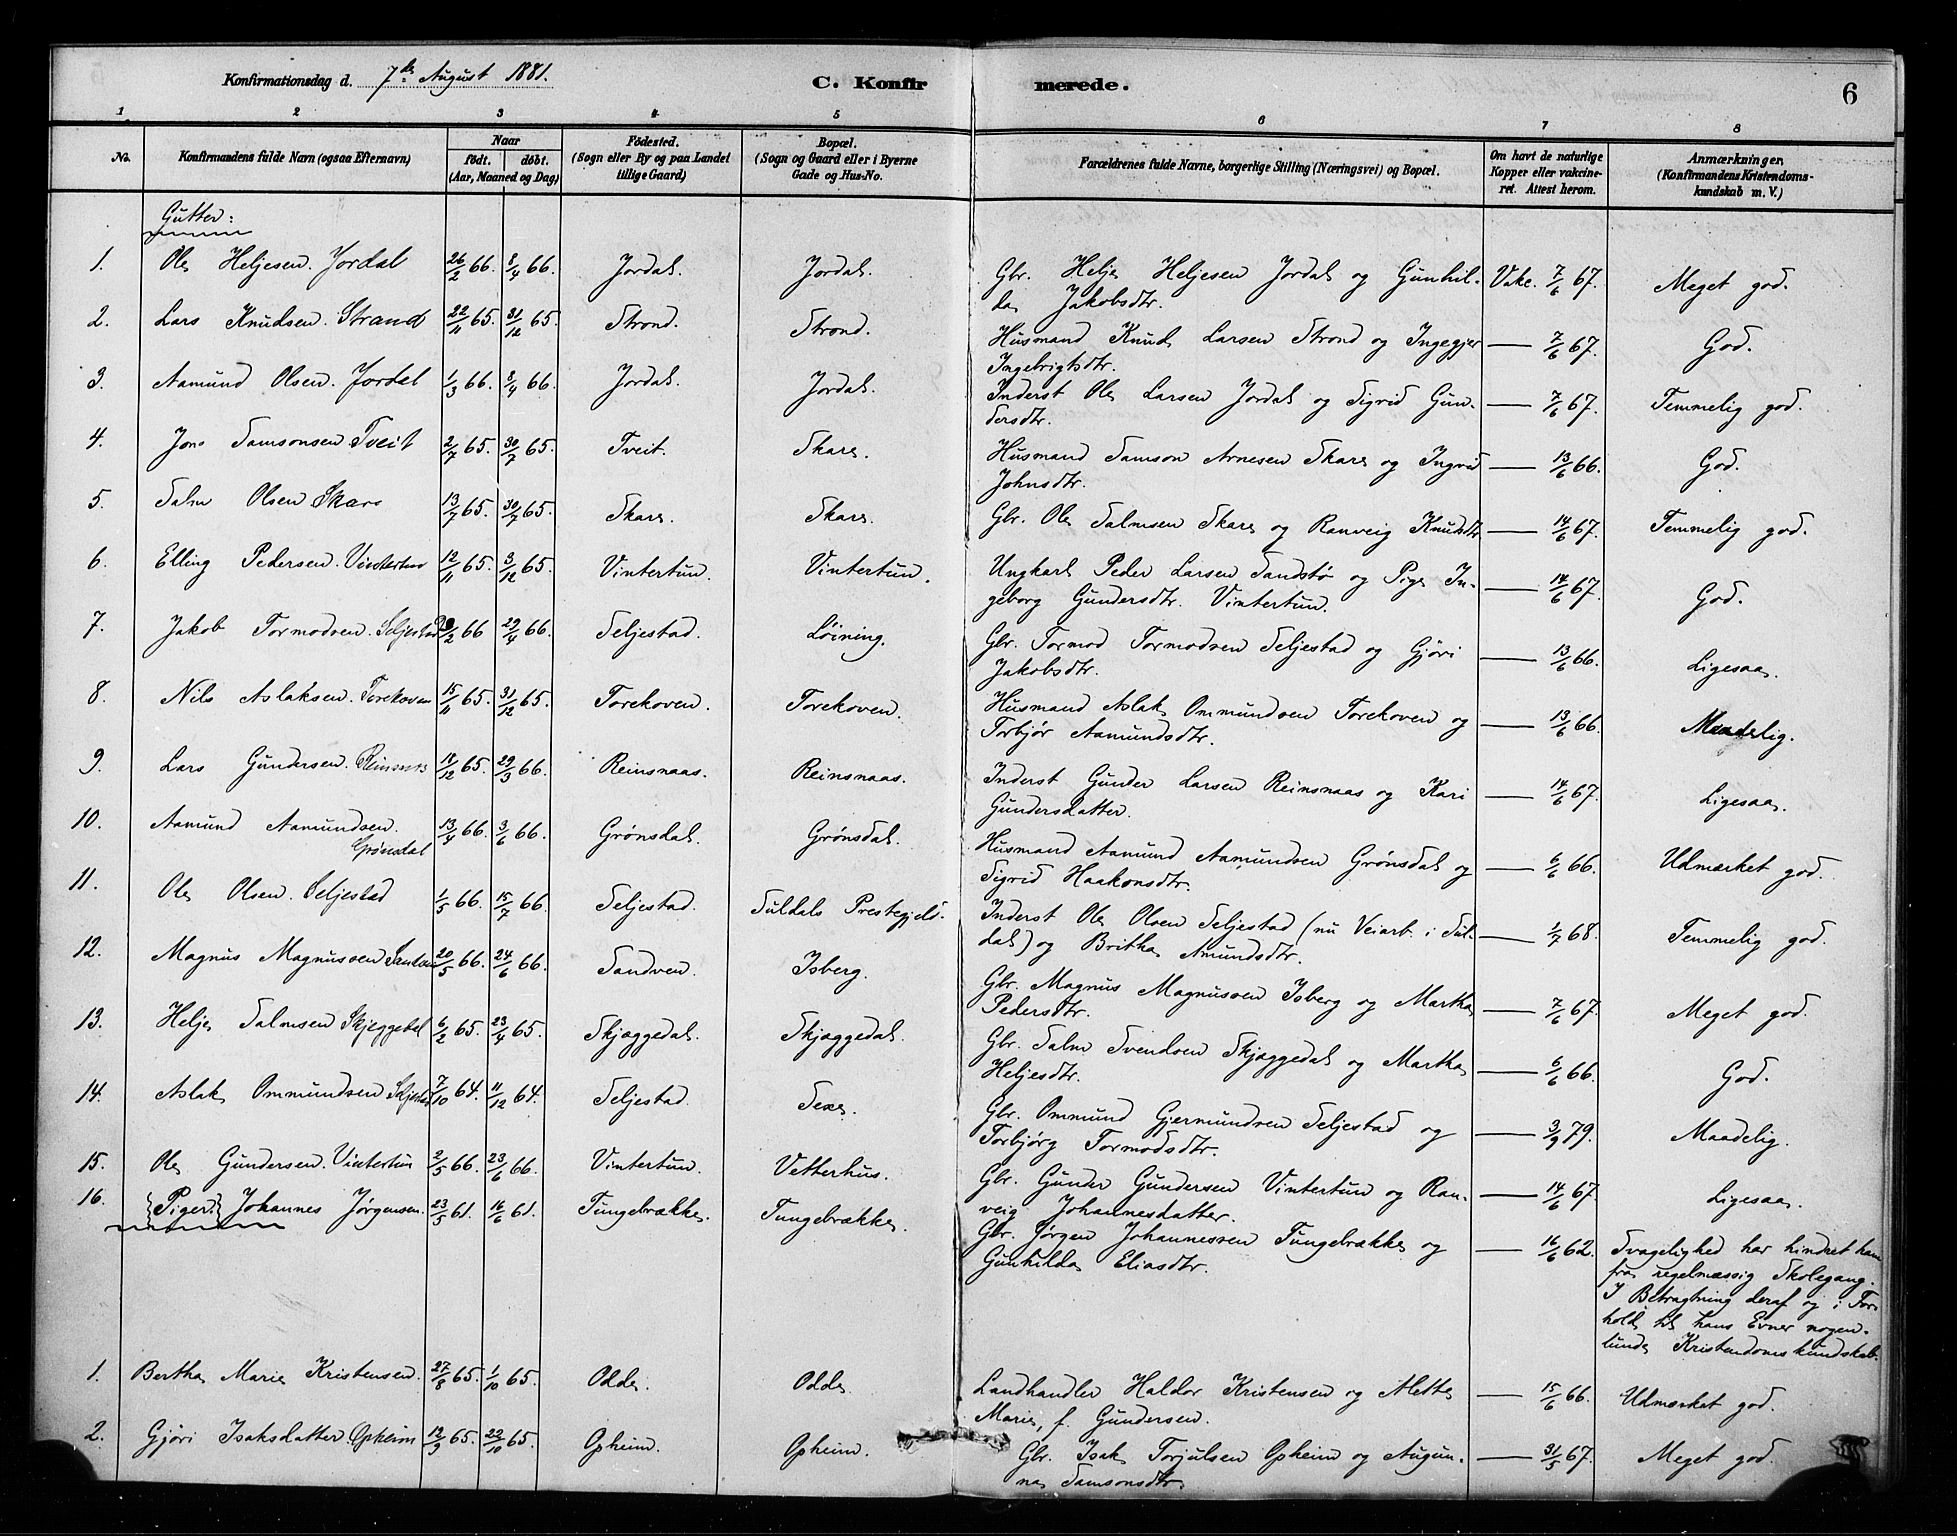 Konfirmationsdag d. 7de August 1881.
C. Konfirmerede.
6
1 2 3 4 5 6 7 8
No.
Konfirmandens fulde Navn (ogsaa Efternavn)
Naar
födt. döbt.
(Aar, Maaned og Dag)
Födested.
(Sogn eller By og paa Landet
tillige Gaard)
Bopæl.
(Sogn og Gaard eller i Byerne
Gade og Hus-No.
Forældrenes fulde Navne, borgerlige Stilling (Næringsvei) og Bopæl.
Om havt de naturlige
Kopper eller vakcine-
ret. Attest herom.
Anmærkninger,
(Konfirmandens Kristendoms-
kundskab m. V.)
Gutter:
1. Ole Heljesen. Jordal 26/2 66. 8/4 66. Jordal. Jordal. Gbr. Helje Heljesen Jordal og Gunhil- Vakc. 7/6 67. Meget god.
da Jakobsdtr.
2. Lars Knudsen. Strand 22/11 65. 31/12 65. Strond. Strond. Husmand Knud Larsen Strond og Ingegjer — 7/6 67. God.
Ingebrigtsdtr.
3. Aamund Olsen. Jordal 1/3 66. 8/4 66. Jordal. Jordal. Inderst Ole Larsen Jordal og Sigrid Gun- — 7/6 67. Temmelig god.
dersdtr.
4. Jon Samsonsen Tveit 2/7 65. 30/7 65. Tveit. Skare. Husmand Samson Arnesen Skare og Ingrid — 13/6 66. God.
Johnsdtr.
5. Salm Olsen Skare 13/7 65. 30/7 65. Skare. Skare. Gbr. Ole Salmsen Skare og Ranveig Knudsdtr — 14/6 67. Temmelig god.
6. Elling Pedersen. Vintertun 12/11 65. 3/12 65. Vintertun. Vintertun. Ungkarl Peder Larsen Sandstø og Pige In- — 14/6 67. God.
geborg Gundersdtr. Vintertun.
7. Jakob Tormodsen. Seljestad /2 66 29/4 66. Seljestad. Löining. Gbr. Tormod Tormodsen Seljestad og Gjøri — 13/6 66. Ligesaa.
Jakobsdtr.
8. Nils Aslaksen. Torekoven 15/11 65. 31/12 65. Torekoven. Torekoven. Husmand Aslak Ommundsen Torekoven og — 13/6 66. Maadelig.
Torbjør Aamundsdtr.
9. Lars Gundersen. Reinsnos /12 65. 29/3 66. Reinsnaas. Reinsnaas. Inderst Gunder Larsen Reinsnaas og Kari — 14/6 67. Ligesaa.
Gundersdatter.
10. Aamund Aamundsen. 13/4 66. 3/6 66. Grønsdal. Grønsdal. Husmand Aamund Aamundsen Grønsdal og — 6/6 66. Udmærket god.
Grønsdal Sigrid Haakonsdtr.
11. Ole Olsen. Seljestad 1/5 66. 15/7 66. Seljestad. Suldals Prestegjeld. Inderst Ole Olsen Seljestad (nu Veiarb. i Sul- — 1/7 68. Temmelig god.
dal) og Britha Amundsdtr.
12. Magnus Magnussen Sandven 20/5 66. 24/6 66. Sandven. Isberg. Gbr. Magnus Magnussen Isberg og Martha — 7/6 67. Meget god.
Pedersdtr.
13. Helje Salmsen Skjeggedal 6/2 65. 23/4 65. Skjæggedal. Skjæggedal. Gbr. Salm Svendsen Skjæggedal og Martha — 6/6 66. God.
Heljesdtr.
14. Aslak Ommundsen Seljestad 7/10 64. 11/12 64. Seljestad. Sexe. Gbr. Ommund Gjermundsen Seljestad og — 3/9 79. Maadelig.
Torbjørg Tormodsdtr.
15. Ole Gundersen. Vintertun 2/5 66. 23/6 66. Vintertun. Vetterhus. Gbr. Gunder Gundersen Vintertun og Ran- — 14/6 67. Ligesaa.
veig Johannesdatter.
16. {Piger:} Johannes Jørgensen. 23/5 61. 16/6 61. Tungebrække. Tungebrække. Gbr. Jørgen Johannessen Tungebrække og — 16/6 62. Svagelighed har hindret ham
Gunhilda Eliasdtr. fra regelmæssig Skolegang.
I Betragtning deraf og i For-
hold til hans Evner nogen-
lunde Kristendomskundskab.
1. Bertha Marie Kristensen. 27/8 65. 1/10 65. Odde. Odde. Landhandler Haldor Kristensen og Mette — 15/6 66. Udmærket god.
Marie, f. Gundersen.
2. Gjøri Isaksdatter. Opheim 12/9 65. 22/10 65. Opheim. Opheim. Gbr. Isak Torjulsen Opheim og Augun- — 31/5 67. Meget god.
na Samsonsdtr.